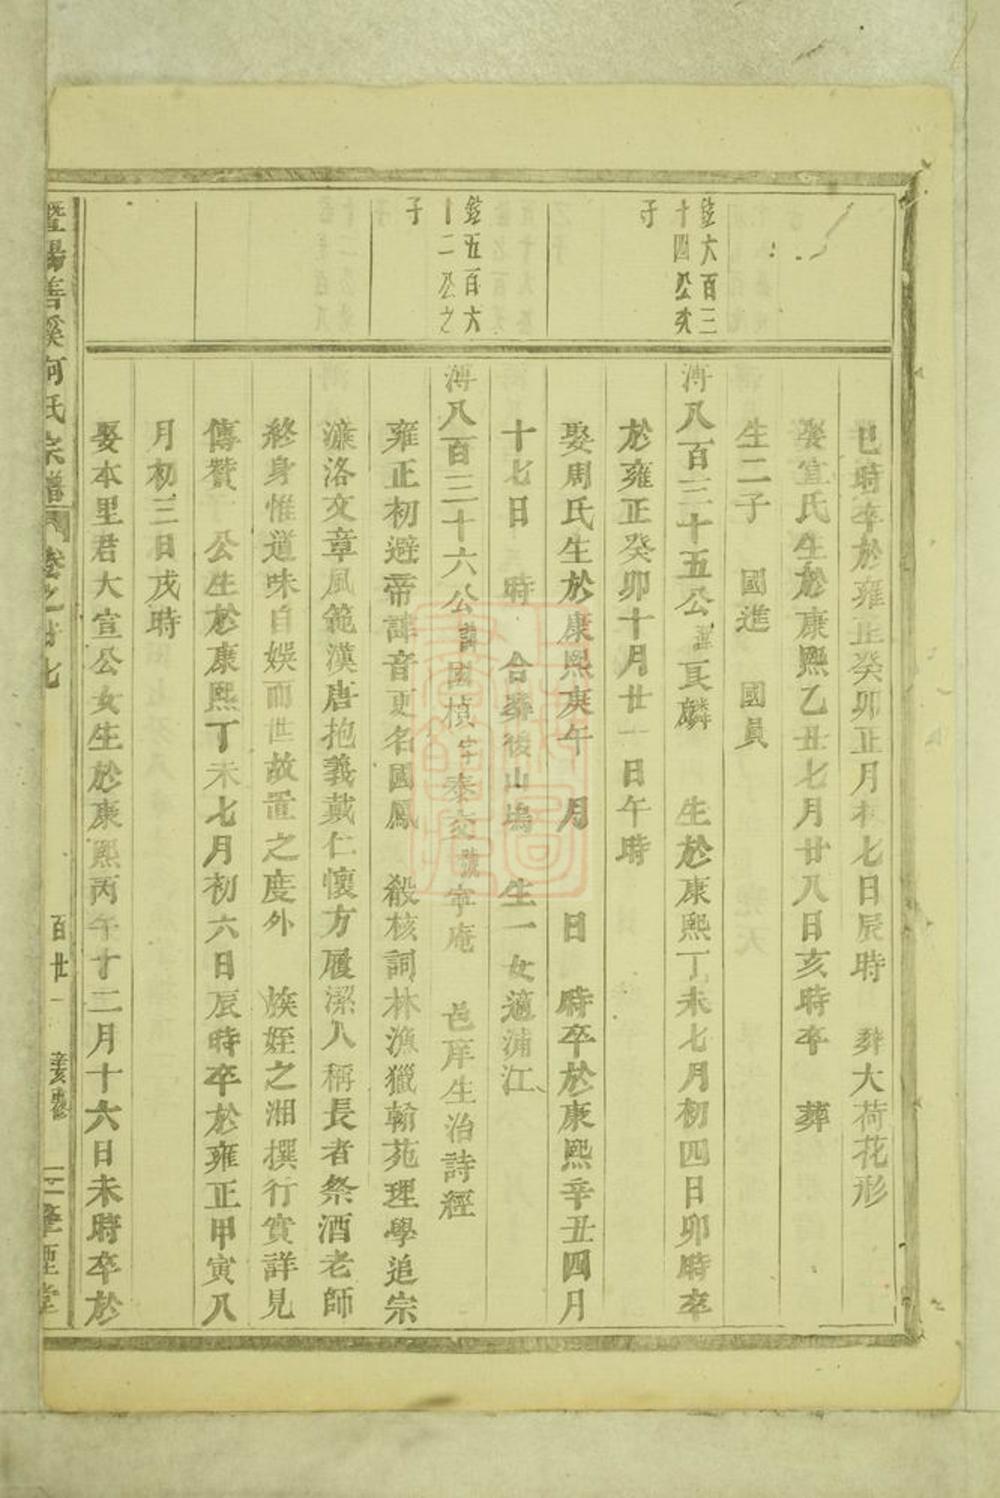 巳時卒於雍正癸卯正月初七日辰時　葬大荷花形
娶宣氏生於康熙乙丑七月廿八日亥時卒　葬
生二子　國進　國員
鉉六百三
十四公次
子
溥八百三十五公諱長麟　生於康熙丁未七月初四日卯時卒
於雍正癸卯十月廿一日午時
娶周氏生於康熙庚午　月　日　時卒於康熙辛丑四月
十七日　時　合葬後山塢　生一女適浦江
鉉五百六
十二公之
子
溥八百三十六公諱國楨字泰交號寧庵　邑庠生治詩經
雍正初避帝諱音更名國鳳　殽核詞林漁獵翰苑理學追宗
濂洛文章風範漢唐抱義戴仁懷方履潔人稱長者祭酒老師
終身惟道味自娛而世故置之度外　族姪之湘撰行實詳見
傳贊　公生於康熙丁未七月初六日辰時卒於雍正甲寅八
月初三日戌時
娶本里君大宣公女生於康熙丙午十二月十六日未時卒於
暨陽善溪何氏宗譜　卷之　七　百廿一　辛亥重修　堂